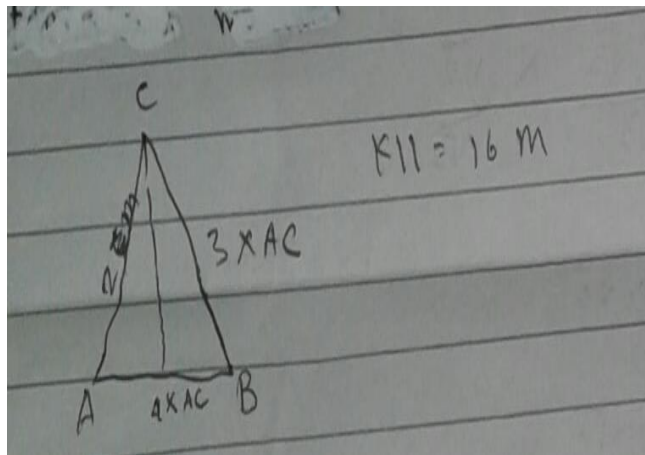 C
Kll = 16 m
3 x AC
A
4 x AC
B